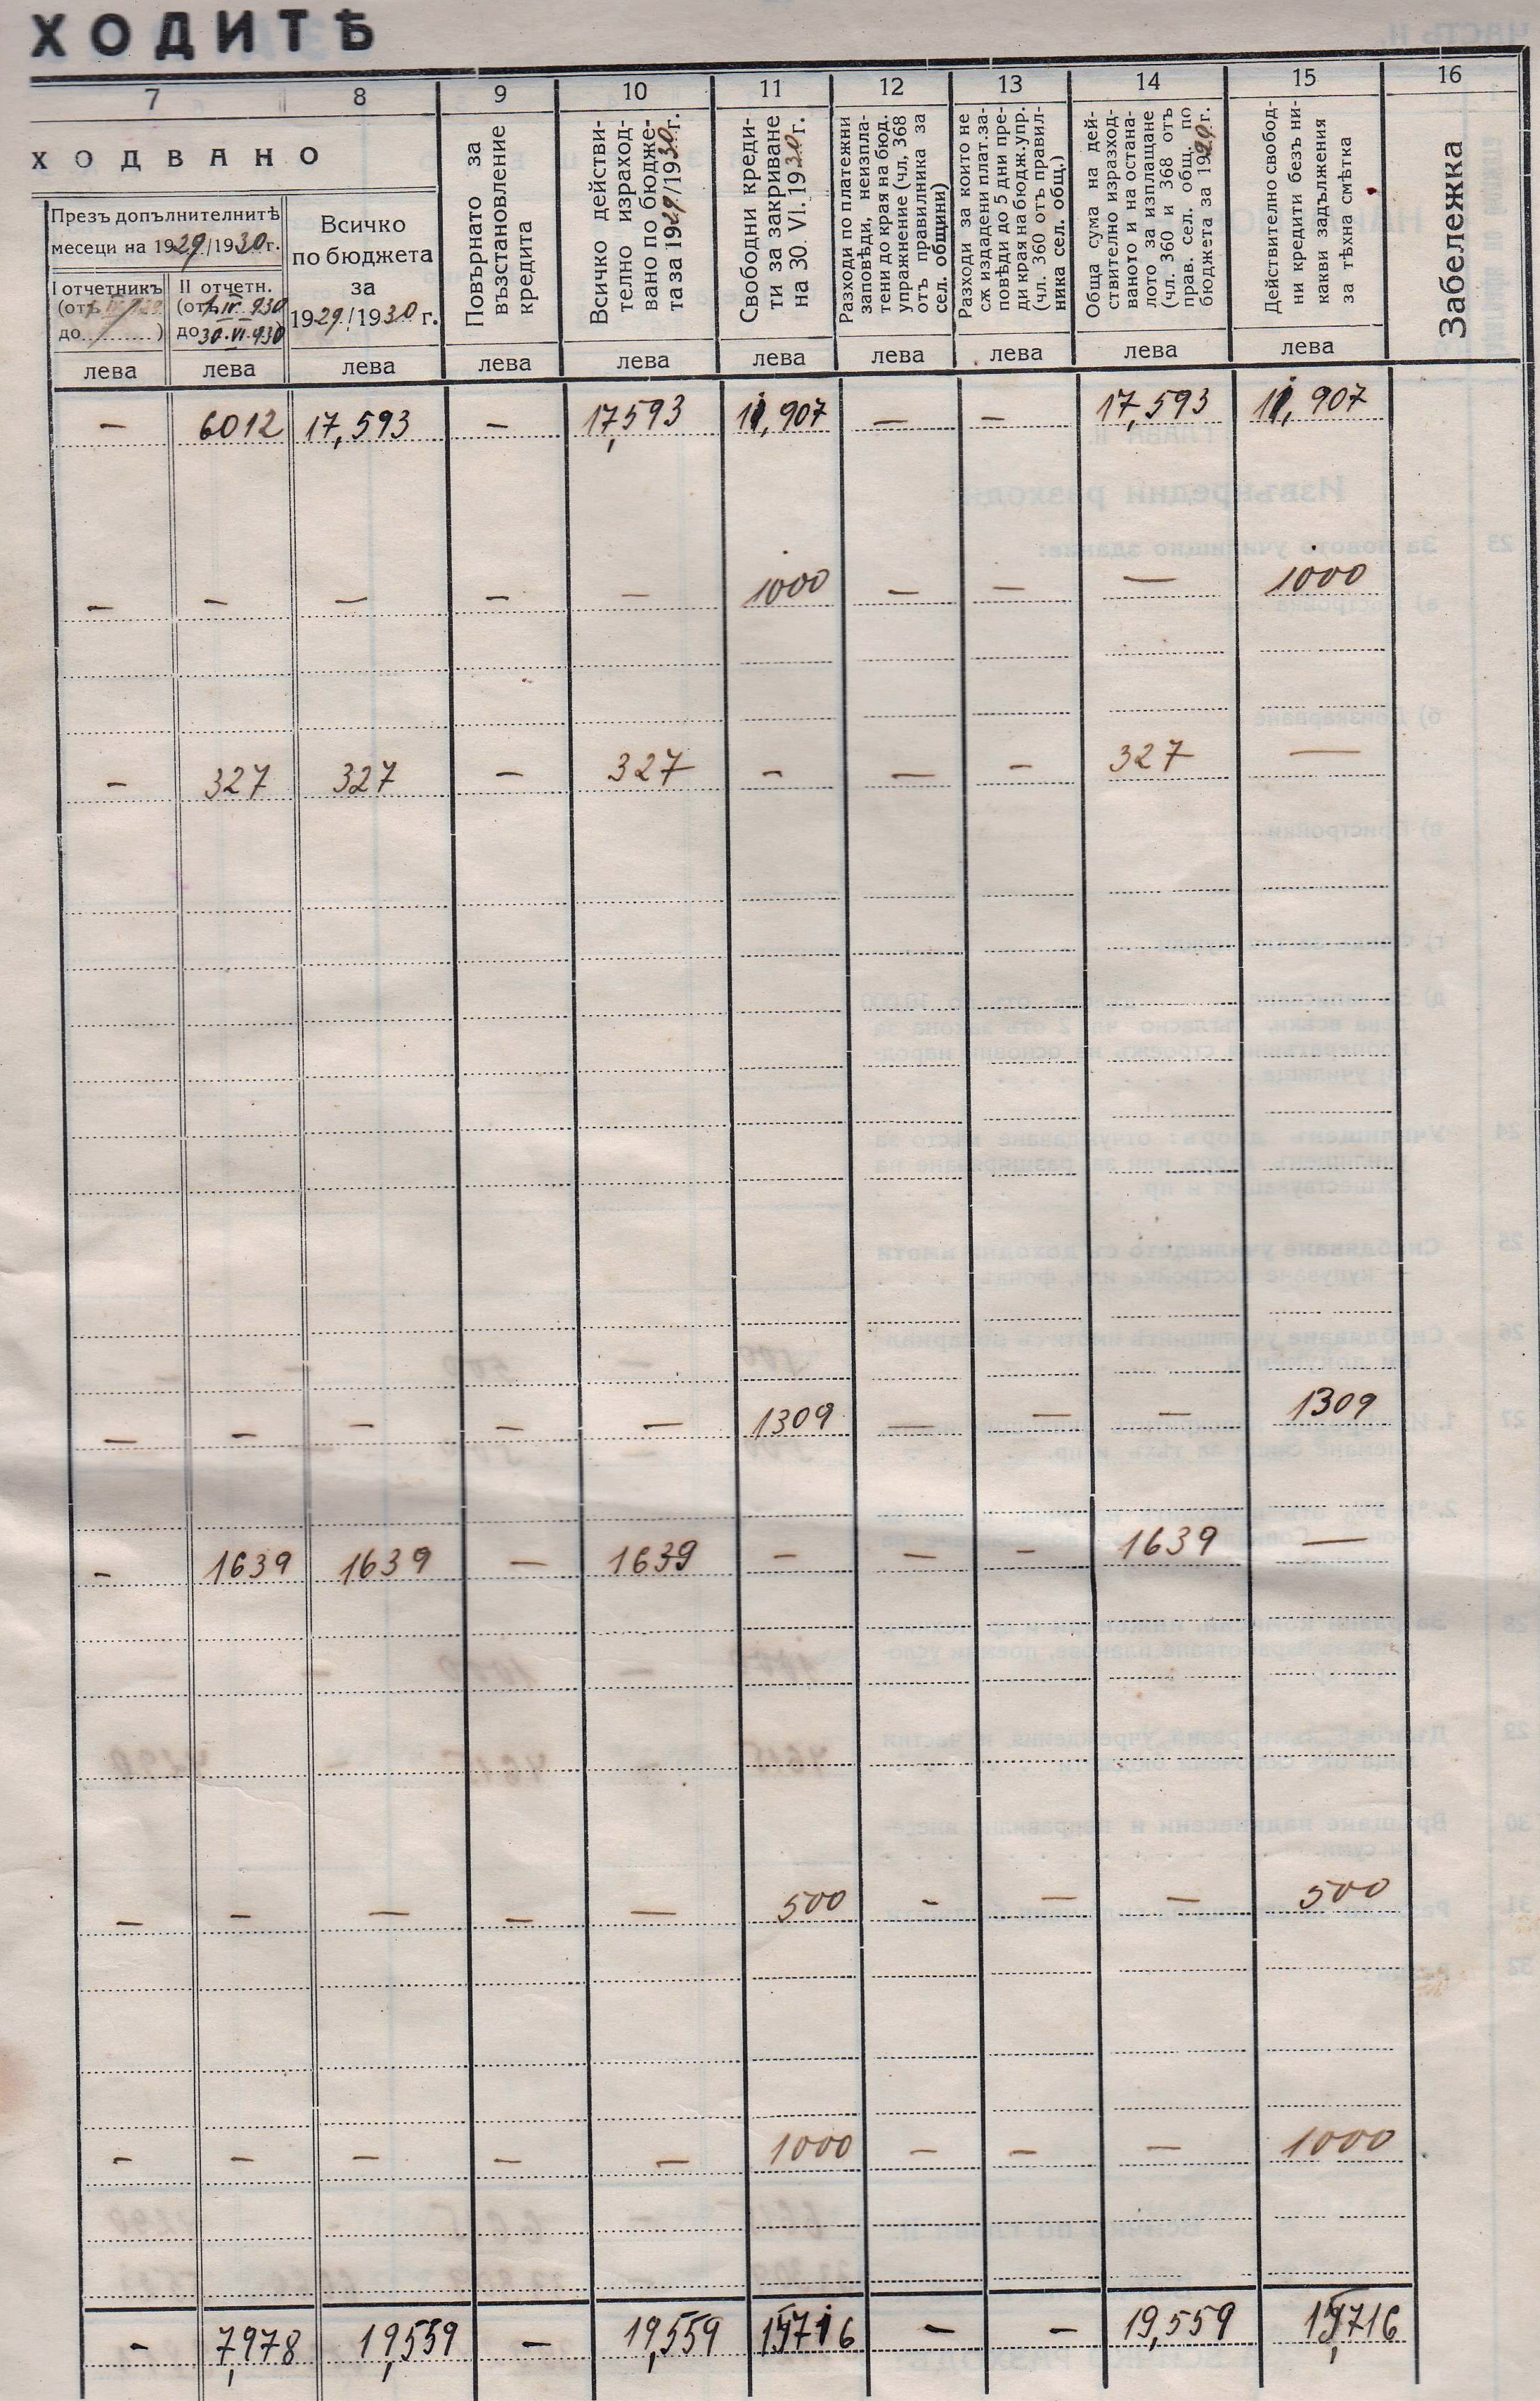 ХОДИТѢ
7 8 9 10 11 12 13 14 15 16
ХОДВАНО
Презъ допълнителнитѣ
месеци на 1929/1930 г.
I отчетникъ
(отъ
до ............ )
II отчетн.
(отъ 1. IV. 930
до 30. VI. 930
Всичко
по бюджета
за
1929/1930 г.
Повърнато за
възстановление
кредита
Всичко действи-
телно израход-
вано по бюдже-
та за 1929/1930 г.
Свободни креди-
ти за закриване
на 30. VI. 1930 г.
Разходи по платежни
заповѣди, неизпла-
тени до края на бюд.
упражнение (чл, 368
отъ правилника за
сел. общини)
Разходи за които не
сѫ издадени плат.за-
повѣди до 5 дни пре-
ди края на бюдж.упр.
(чл. 360 отъ правил-
ника сел. общ.)
Обща сума на дей-
ствително изразход-
ваното и на остана-
лото за изплащане
(чл. 360 и 368 отъ
прав. сел. общ. по
бюджета за 1929 г.
Действително свобод-
ни кредити безъ ни-
какви задължения
за тѣхна смѣтка
Забележка
лева лева лева лева лева лева лева лева лева лева
— 6012 17,593 — 17,593 11,907 — — 17,593 11,907
— — — — — 1000 — — — 1000
— 327 327 — 327 — — — 327 —
— — — — — 1309 — — — 1309
— 1639 1639 — 1639 — — — 1639 —
— — — — — 500 — — — 500
— — — — — 1000 — — — 1000
— 7,978 19,559 — 19,559 15716 — — 19,559 15,716